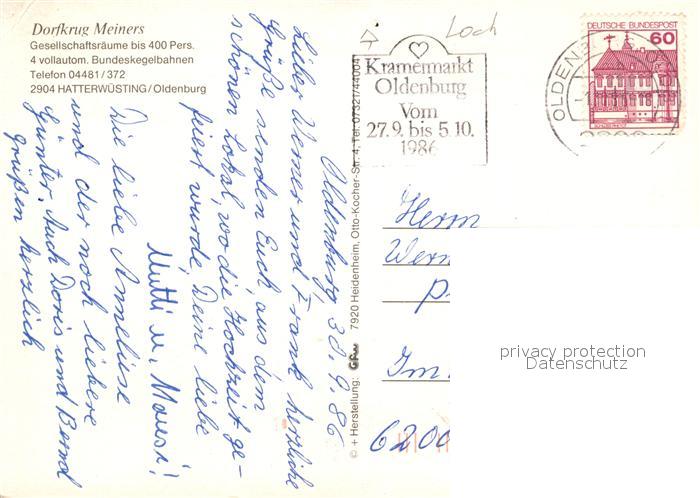 Dorfkrug Meiners
Gesellschaftsräume bis 400 Pers.
4 vollautom. Bundeskegelbahnen
Telefon 04481/372
2904 HATTERWÜSTING/Oldenburg
Oldenburg, 30.9.86
Lieber Werner und Frank herzliche
Grüße senden Euch aus dem
schönen Lokal, wo die Hochzeit ge-
feiert wurde, Deine liebe
Mutti u. Mausi!
Die liebe Anneliese
und der noch liebere
Günter. Auch Doris und Bernd
grüßen herzlich
© + Herstellung: 7920 Heidenheim, Otto-Kocher-Str. 4, Tel. 07321/44004
Loch
Kramermarkt
Oldenburg
Vom
27.9. bis 5.10.
1986
OLDEN
DEUTSCHE BUNDESPOST
60
Herrn
Wern
Im
6200
privacy protection
Datenschutz